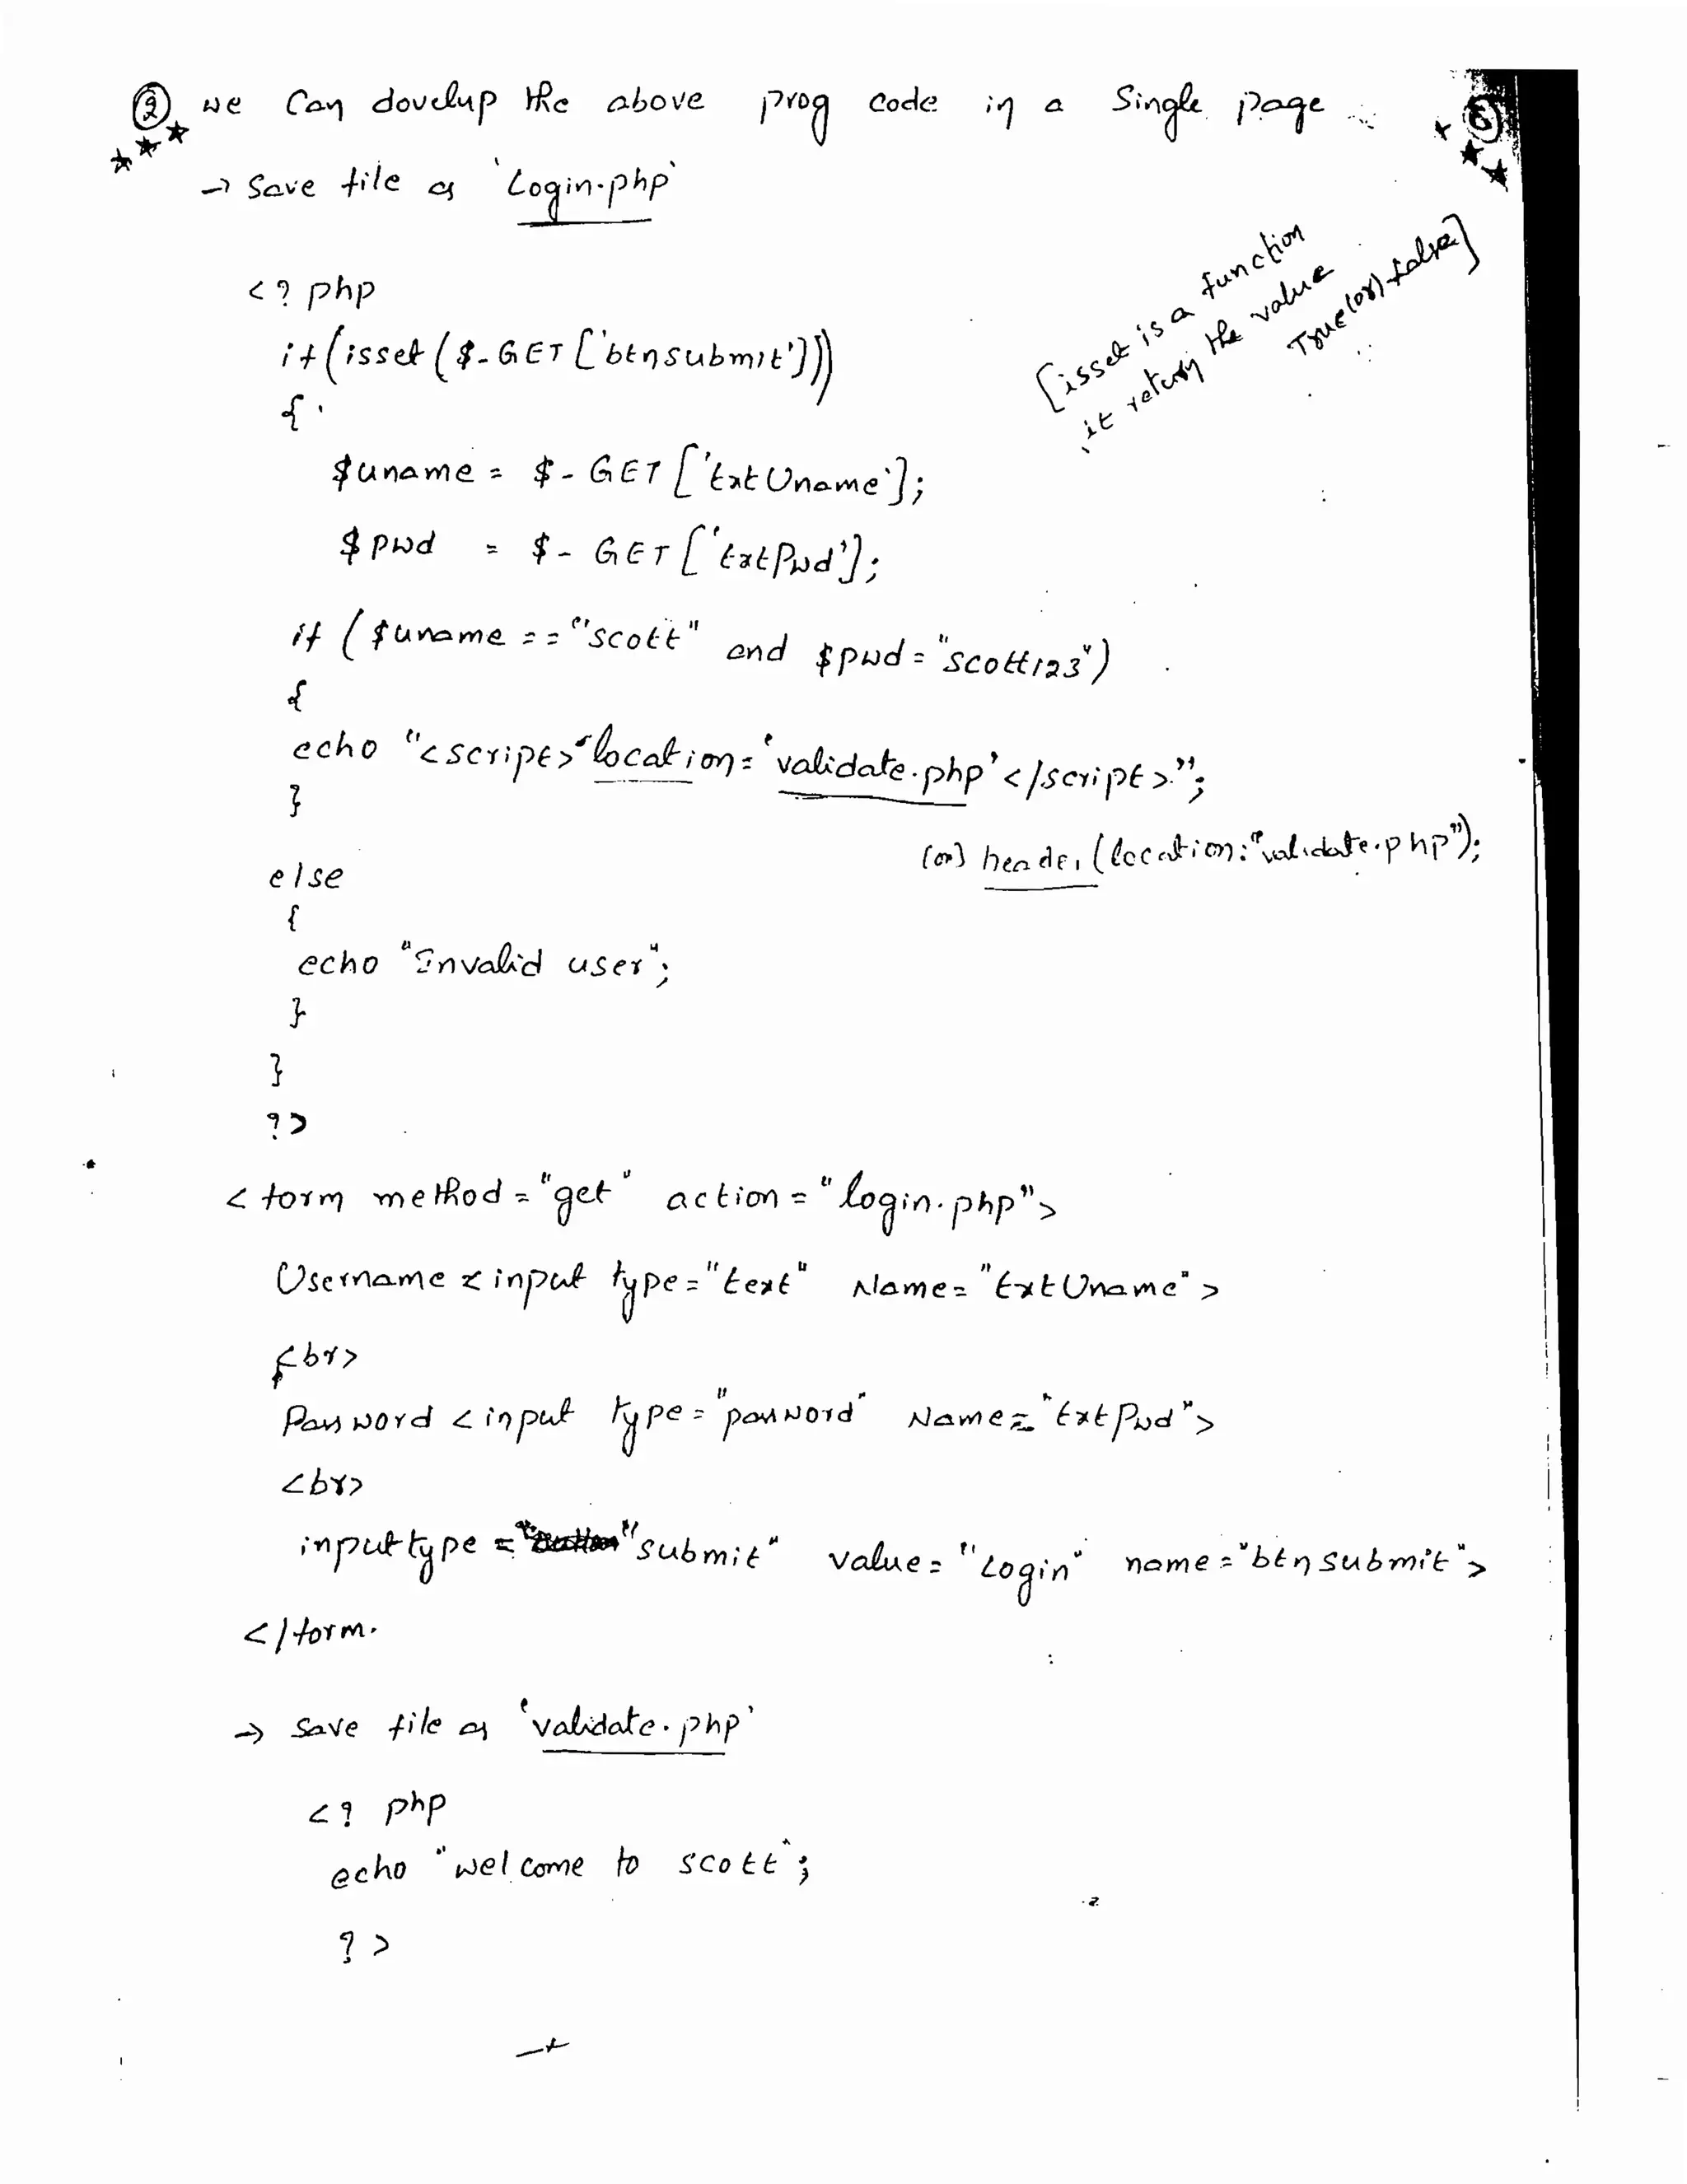 ② we Can dovelup the above prog code in a Single page
6
→ Save file as 'Login.php'
[isset is a function
it return the value
True (or) false]
<? php
if (isset ($-GET ['btnsubmit']))
{
$uname = $-GET ['txtUname'];
$pwd = $-GET ['txtPwd'];
if ($uname == "scott" and $pwd = "scott123")
{
echo "<script> location = 'validate.php' </script>";
}
(or) header (location: "validate.php");
else
{
echo "Invalid user";
}
}
?>
<form method = "get" action = "login.php">
Username < input type = "text" Name = "txtUname">
<br>
Password < input type = "password" Name = "txtPwd">
<br>
input type = "submit" value = "Login" name = "btnsubmit">
</form.
→ Save file as 'validate.php'
<? php
echo "welcome to scott";
?>